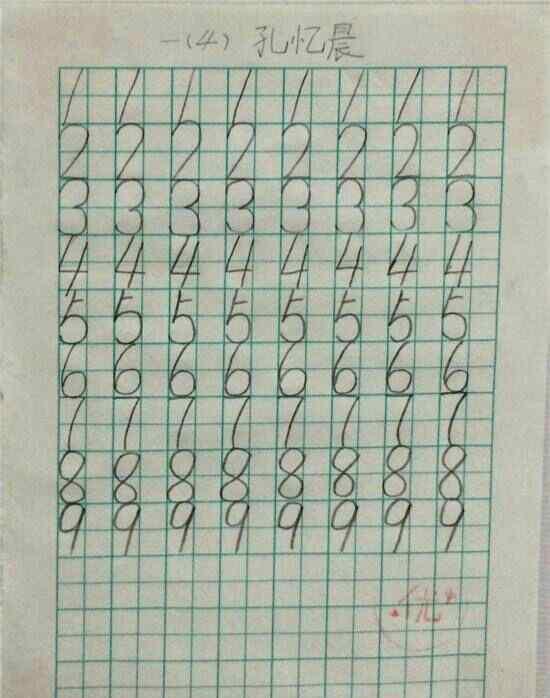 一(4) 孔忆晨
1 1 1 1 1 1 1 1
2 2 2 2 2 2 2 2
3 3 3 3 3 3 3 3
4 4 4 4 4 4 4 4
5 5 5 5 5 5 5 5
6 6 6 6 6 6 6 6
7 7 7 7 7 7 7 7
8 8 8 8 8 8 8 8
9 9 9 9 9 9 9 9
优+